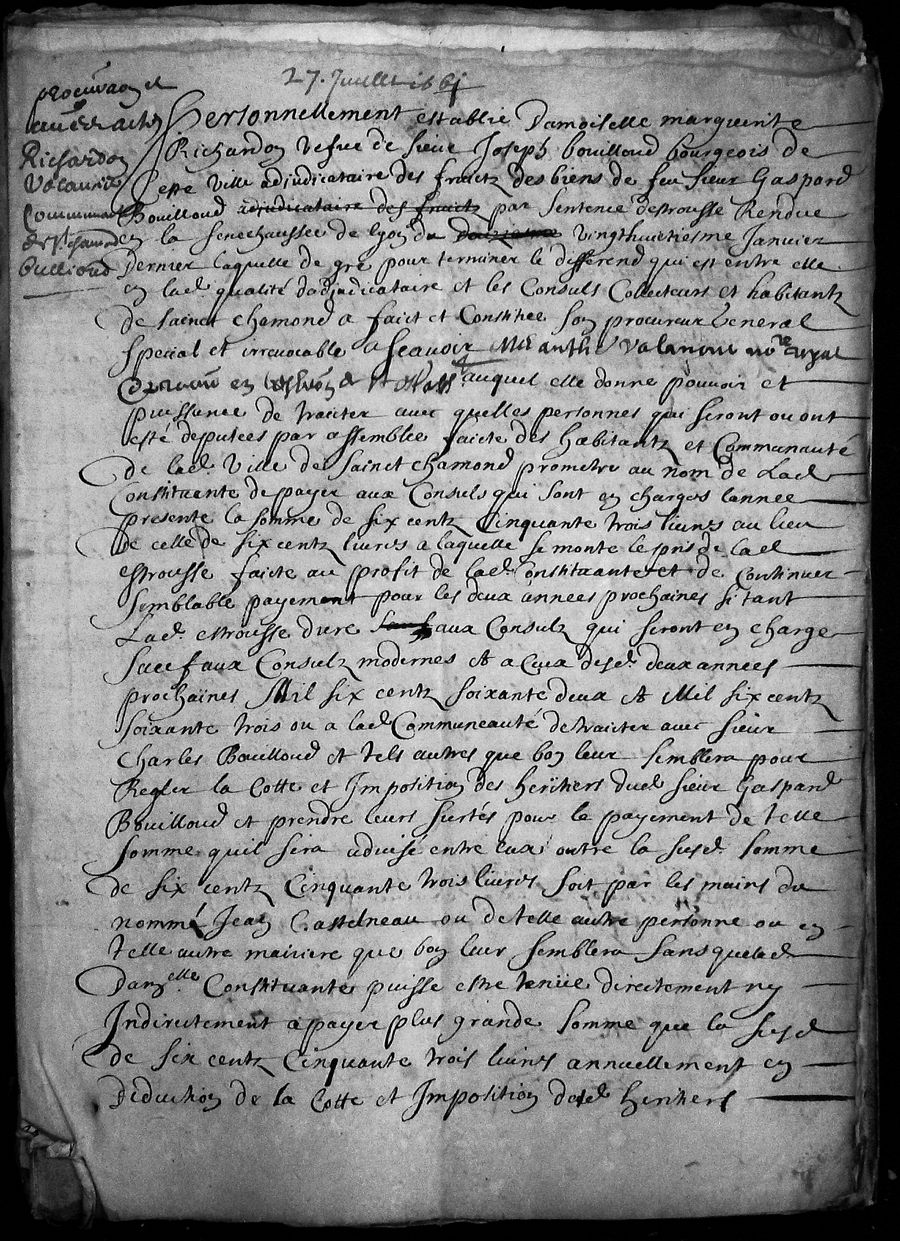 27. Juillet 1661
procuraon et
Richardon
Valancie
Communauté
de St chamond
Bullioud
Personnellement establie Damoiselle marguerite
Richardon vefue de sieur Joseph bouilloud bourgeois de
cette ville adjudicataire des fruictz des biens de feu sieur Gaspard
Bouilloud adjudicataire des fruictz par sentence destrousse Rendue
en la senechaussee de lyon du vingthuictiesme Janvier
Dernier laquelle de gré pour terminer le differend qui est entre elle
en lad. qualité dadjudicataire et les Consuls Collecteurs et habitantz
de sainct chamond a faict et Constitué son procureur General
special et irrevocable ascavoir Me anthe Valancie nore royal
auquel elle donne pouvoir et
puissance de traicter avec quelles personnes qui seront ou ont
esté deputees par assemblee faicte des habitantz et Communauté
de lad. ville de Sainct chamond prometre au nom de Lad
Constituante de payer aux Consuls qui sont en charges lannee
presente la somme de six centz Cinquante trois livres au lieu
de celle de six centz livres a laquelle se monte le pris de lad
estrousse faicte au profit de lad. Constituante et de continuer
semblable payement pour les deux années prochaines si tant
Lad. estrousse dure aux Consulz qui seront en charge
Sauf aux Consulz modernes et a Ceux desd. deux années
prochaines Mil six centz soixante deux et Mil six centz
soixante trois ou a lad Communeauté de traicter avec sieur
Charles Bouilloud et tels autres que bon leur semblera pour
Regler la Cotte et Imposition des heritiers dud sieur Gaspard
Bouilloud et prendre leurs surtés pour le payement de telle
somme quil sera advisé entre eux outre la susd. somme
de six centz Cinquante trois livres soit par les mains du
nommé Jean Castelneau ou de telle autre personne ou en
telle autre maniere que bon leur semblera sans que lad
Damlle Constituante puisse estre tenüe directement ny
Indirectement a payer plus grande somme que la susd
de six centz Cinquante trois livres annuellement en
Deduction de la Cotte et Imposition desd heritiers